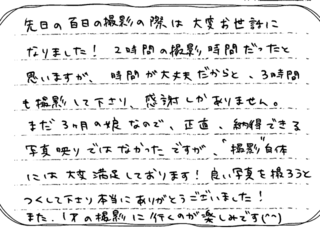 先日の百日の撮影の際は大変お世話に
なりました！２時間の撮影時間だったと
思いますが、時間が大丈夫だからと、３時間
も撮影して下さり、感謝しかありません。
まだ３ヶ月の娘なので、正直、納得できる
写真映りではなかったですが、"撮影"自体
には大変満足しております！良い写真を撮ろうと
つくして下さり本当にありがとうございました！
また、１才の撮影に行くのが楽しみです(^^)